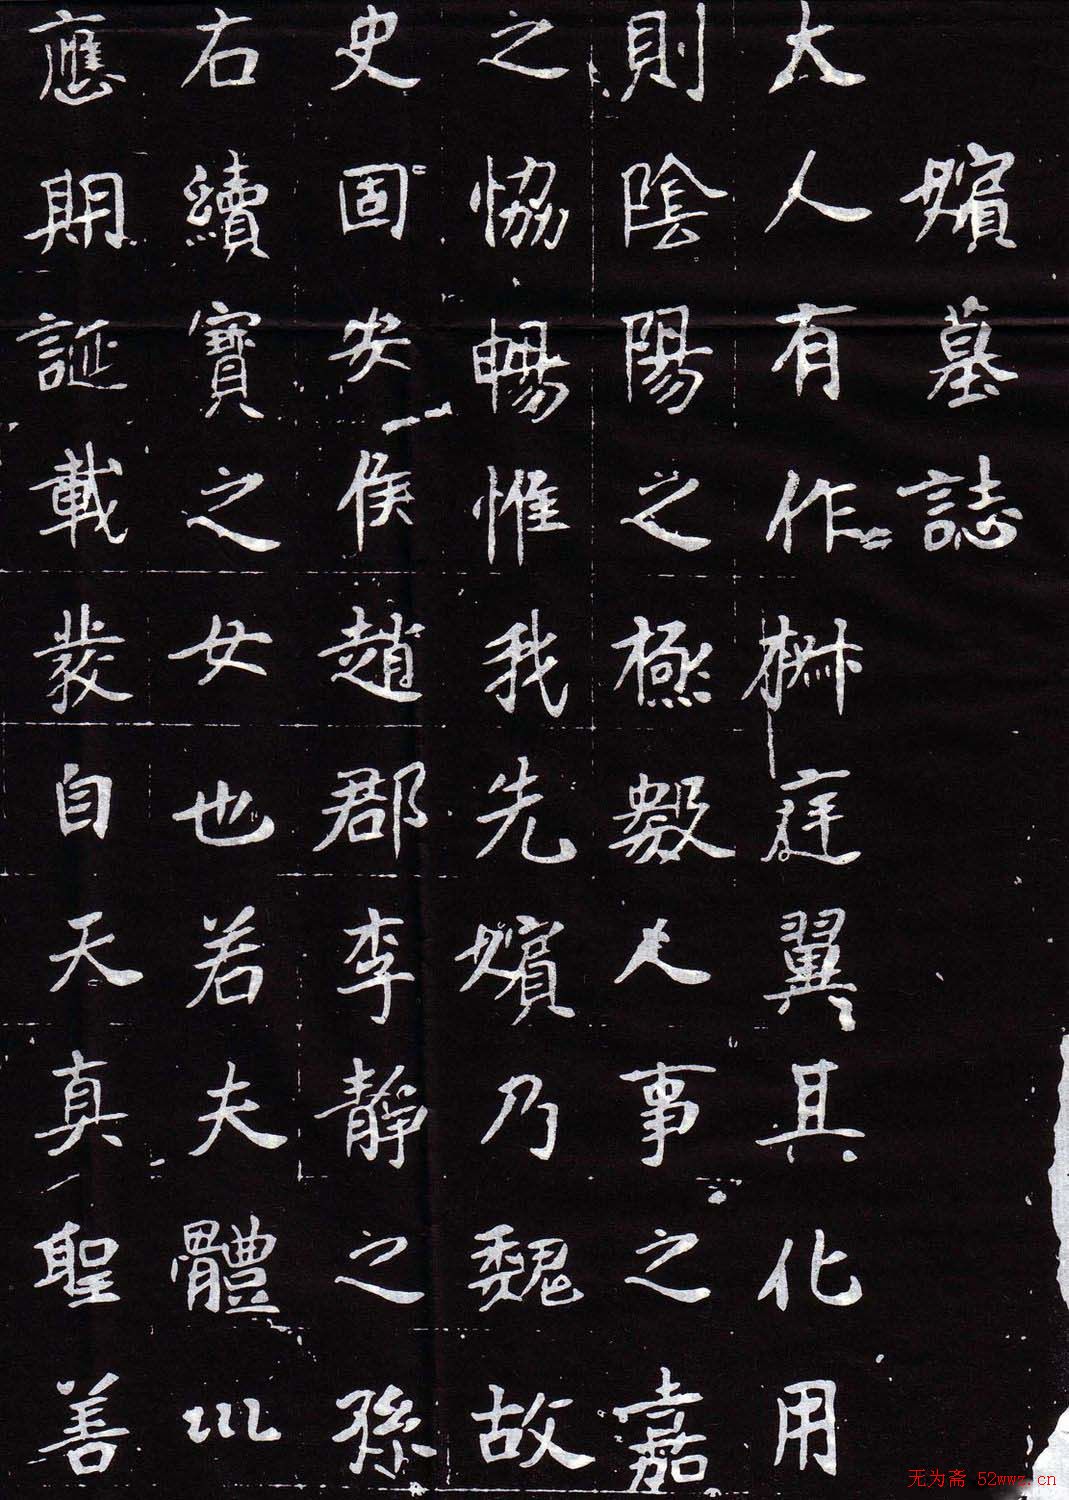 嬪墓誌
大人有作樹庭翼其化用
則陰陽之極敷人事之嘉
之恊暢惟我先嬪乃魏故
史固安侯趙郡李靜之孫
右續寶之女也若夫體㠯
應期誕載發自天真聖善
无为斋 52wwz.cn